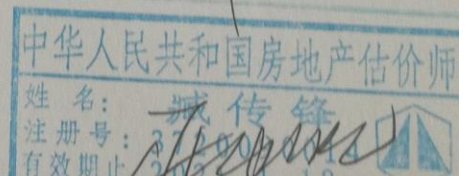 中华人民共和国房地产估价师
姓 名: 臧传锋
注册号:
有效期止